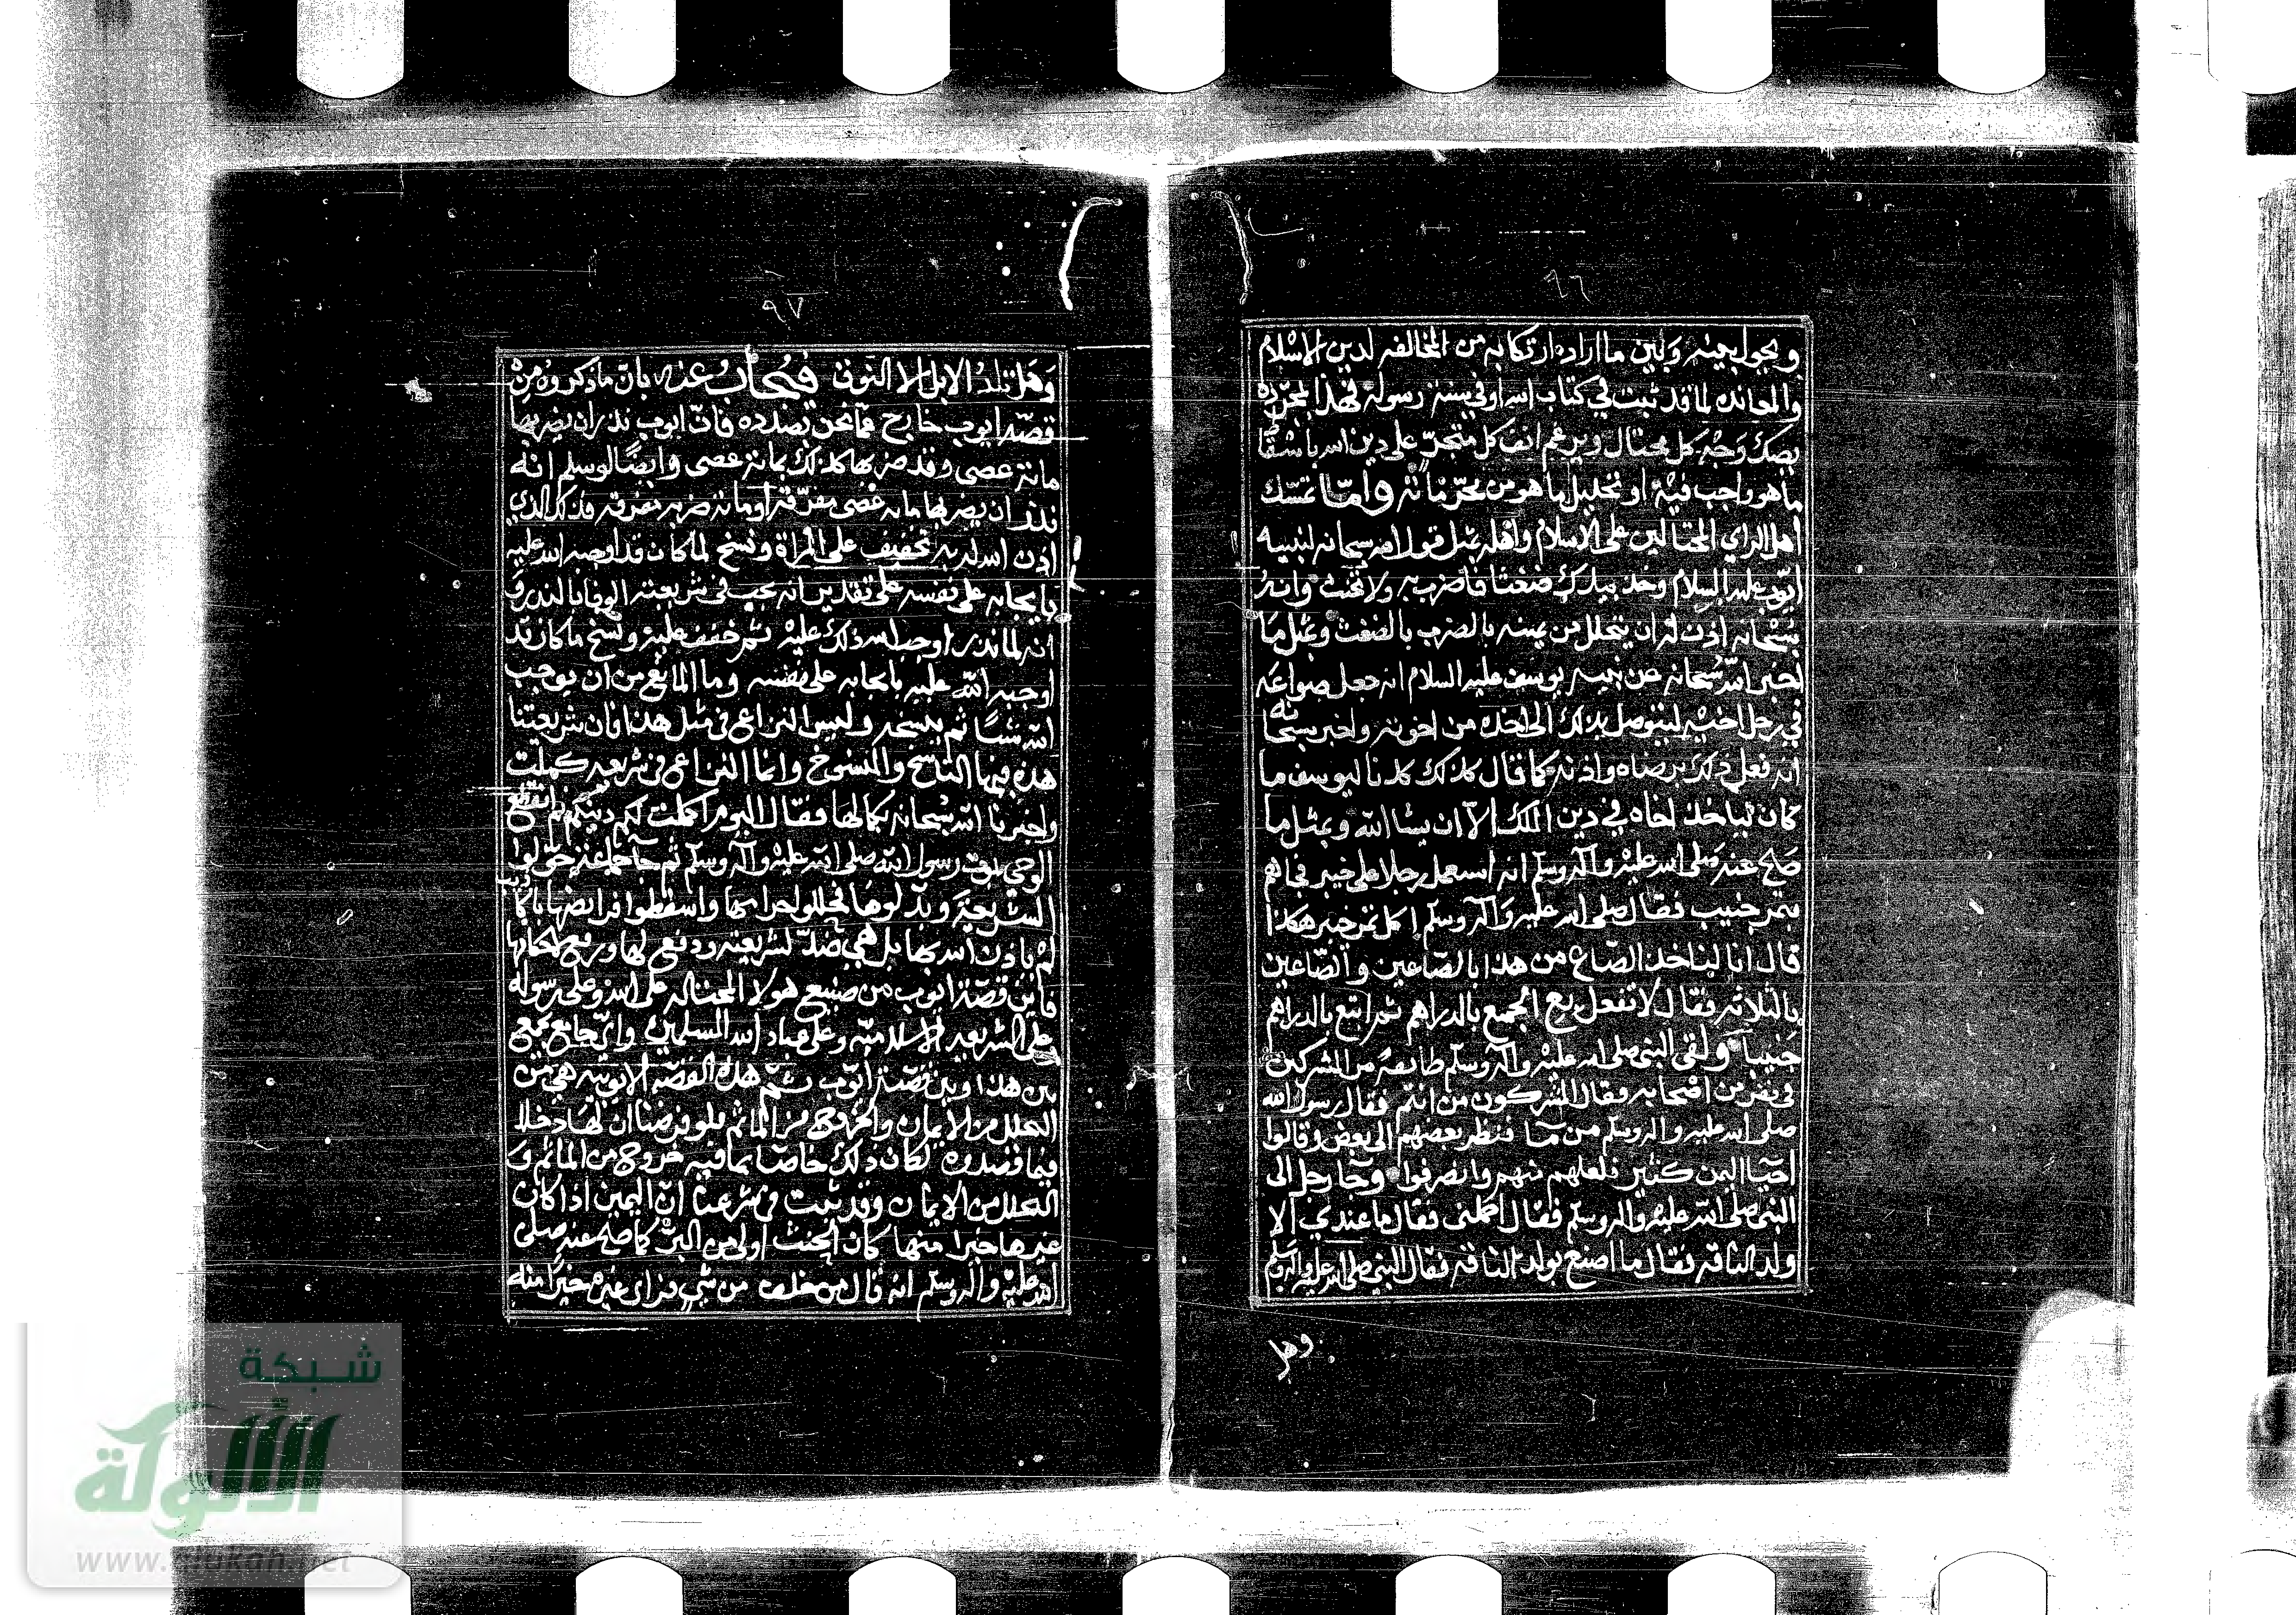 ٩٦
ويحول بينه وبين ما اراده ارتكابه من المخالفه لدين الاسلام
والمعانده لما قد ثبت في كتاب الله او في سنة رسوله فهذا بمجرده
يصك وجه كل محتال ويرغم انف كل متجر على دين الله باسقا
ما هو واجب فيه او تحليل ما هو من محرماته واما تمسك
اهل الراي المحتالين على الاسلام واهله بمثل قول الله سبحانه لنبيه
ايوب عليه السلام وخذ بيدك ضغثا فاضرب به ولا تحنث وانه
سبحانه اذن له ان يتحلل من يمينه بالضرب بالضغث وبمثل ما
اخبر الله سبحانه عن نبيه يوسف عليه السلام انه جعل صواعه
في رحل اخيه ليتوصل بذلك الى اخذه من اخوته واخبر سبحانه
انه فعل ذلك برضاه واذنه كما قال كذلك كدنا ليوسف ما
كان لياخذ اخاه في دين الملك الا ان يشا الله وبمثل ما
صح عنه صلى الله عليه وآله وسلم انه استعمل رجلا على خيبر فجاهم
بتمر جنيب فقال صلى الله عليه وآله وسلم اكل تمر خيبر هكذا
قال انا لناخذ الصاع من هذا بالصاعين والصاعين
بالثلاثه فقال لا تفعل بع الجمع بالدراهم ثم ابتع بالدراهم
جنيبا ولقى النبي صلى الله عليه وآله وسلم طايفه من المشركين
في نفر من اصحابه فقال المشركون من انتم فقال رسول الله
صلى الله عليه واله وسلم من ما فنظر بعضهم الى بعض وقالوا
احيا اليمن كثير فلعلهم منهم وانصرفوا وجا رجل الى
النبي صلى الله عليه واله وسلم فقال احملني فقال ما عندي الا
ولد الناقه فقال ما اصنع بولد الناقه فقال النبي صلى الله عليه واله وسلم
وهل
٩٧
وهل تلد الابل الا النوق فيجاب عنه بان ما ذكروه من
قصة ايوب خارج عما نحن بصدده فان ايوب نذر ان يضربها
مائة عصى وقد ضربها كذلك بمائة عصى وايضا لو سلم انه
نذر ان يضربها مايه عصى مفرقة او مائة ضربه مفرقه فذلك الذي
اذن الله له به تخفيف على المراة ونسخ لما كان قد اوجبه الله عليه
بايجابه على نفسه على تقدير انه يجب في شريعته الوفا بالنذر و
انه لما نذر اوجب الله ذلك عليه ثم خفف عليه ونسخ ما كان قد
اوجبه الله عليه بايجابه على نفسه وما المانع من ان يوجب
الله شيًا ثم ينسخه وليس النزاع في مثل هذا فان شريعتنا
هذه فيها الناسخ والمنسوخ وانما النزاع في شريعه كملت
واخبرنا الله سبحانه بكمالها فقال اليوم اكملت لكم دينكم ثم انقطع
الوحي بموت رسول الله صلى الله عليه وآله وسلم ثم جا جماعة حولوا
الشريعة وبدلوها فحللوا حرامها واسقطوا فرايضها باكاذيب
لم ياذن الله بها بل هي ضد لشريعته ودفع لها ورفع لاحكامها
فاين قصة ايوب من صنيع هولا المحتاله على الله وعلى رسوله
على الشريعه الاسلاميه وعلى عباد الله المسلمين واي جامع يجمع
بين هذا وبين قصة ايوب ثم هذه القصه الايوبيه هي من
التحلل من الايمان والخروج من الماثم فلو فرضنا ان لها دخلا
فيما قصدوه لكان ذلك خاصا بما فيه خروج من الماثم و
التحلل من الايمان وقد ثبت في شرعنا ان اليمين اذا كان
غيرها خيرا منها كان الحنث اولى من البر كما صح عنه صلى
الله عليه واله وسلم انه قال من حلف من شي فراى غيره خيرا منه
شبكة
الألوكة
www.alukah.net